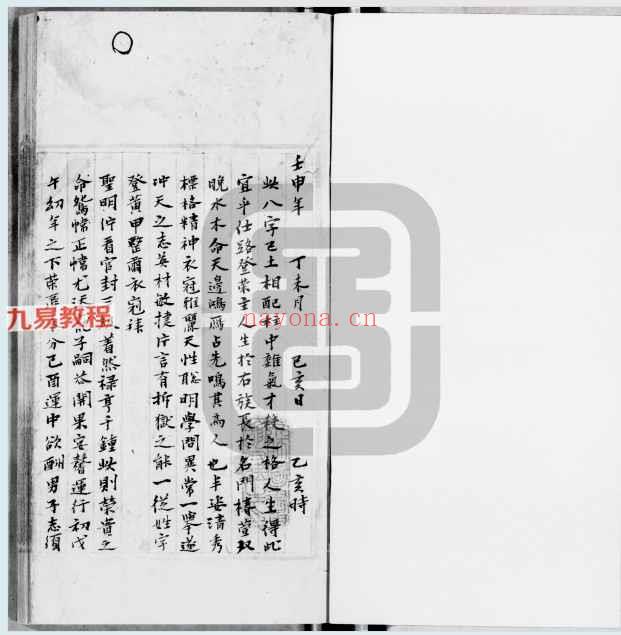 壬申年 丁未月 己亥日 乙亥時
此八字己土相配柱中雜氣才杀之格人生得此
宜乎仕路登荣主人生於右族長於名門椿萱双
晚水木命天邊鴻鴈占先鳴其為人也丰姿清秀
標格精神衣冠雅麗天性聡明學問異常一擧遂
冲天之志英材敏捷片言有折獄之能一從姓字
登黄甲整肅衣冠拜
聖明佇看官封三 着然禄享千鍾此則荣貴之
命鴛幃正幃尤 子嗣 開果定馨運行初戊
午幼年之下荣 分己酉運中欲酬男子志須
九易教程
nayona.cn